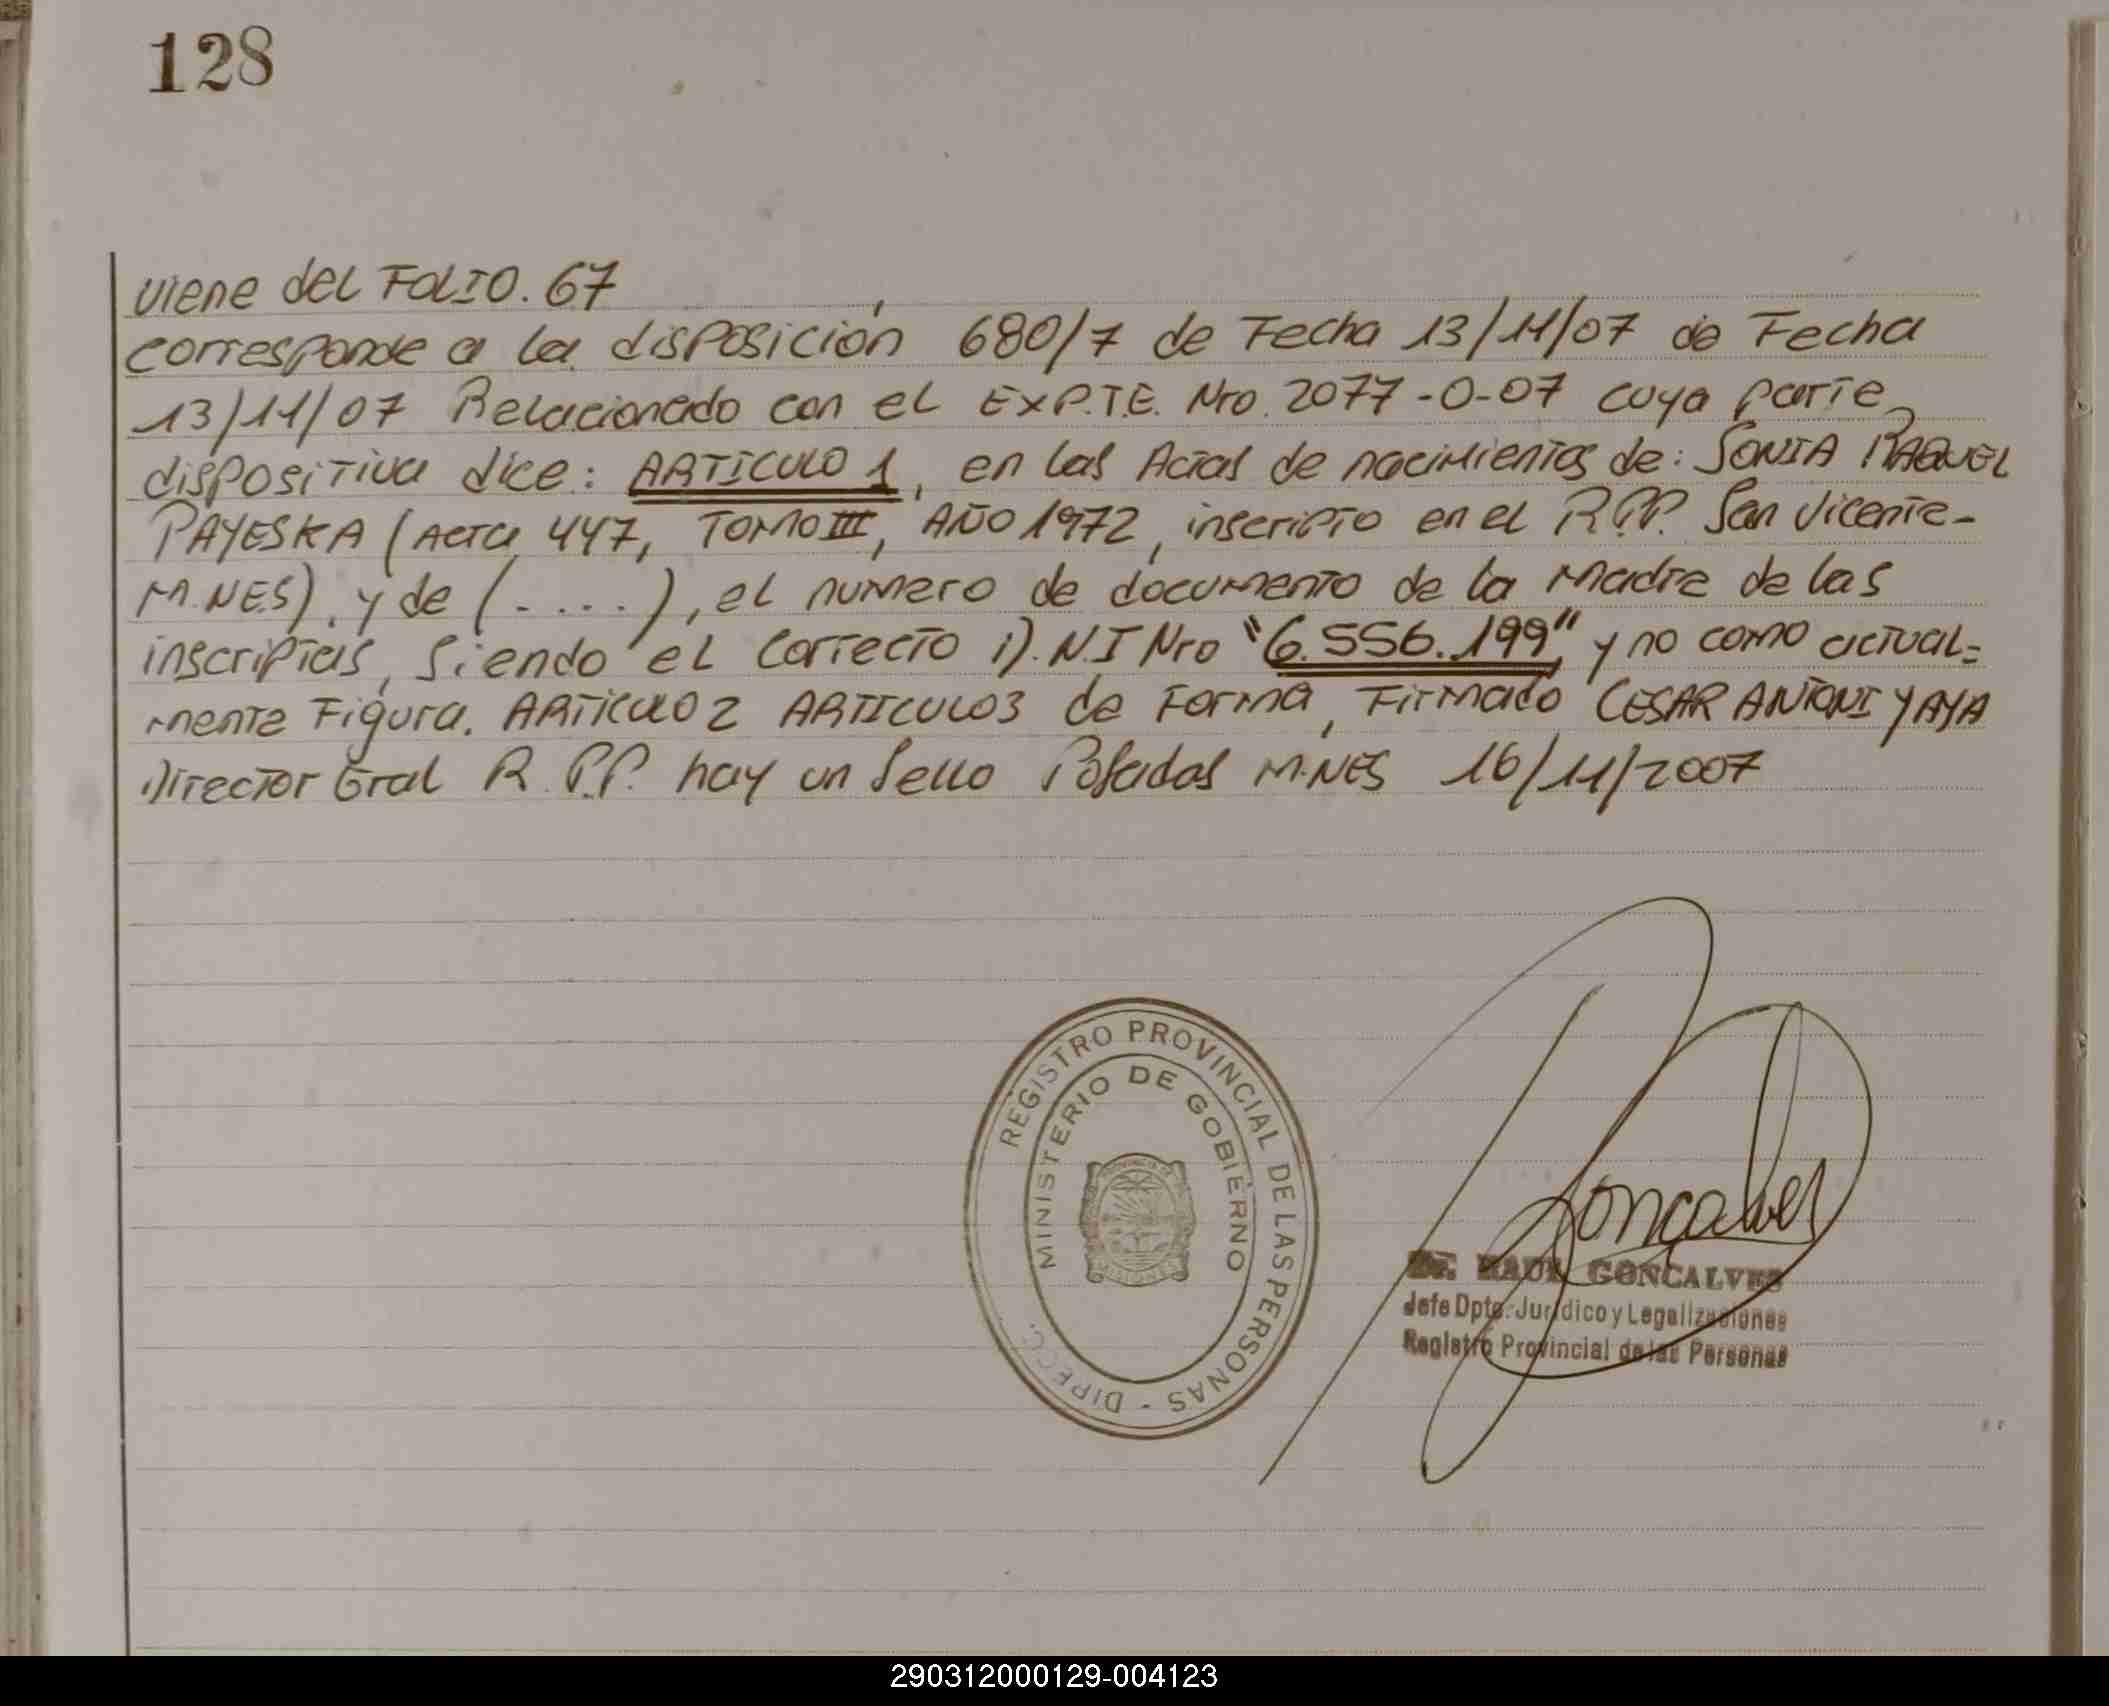 128
viene del FOLIO. 67
corresponde a la disposición 680/7 de Fecha 13/11/07 de Fecha
13/11/07 Relacionado con el EXP.T.E. Nro. 2077-0-07 cuya parte
dispositiva dice: ARTICULO 1, en las Actas de nacimientos de: SONIA RAQUEL
PAYESKA (Acta 447, TOMO III, AÑO 1972, inscripto en el R.P.P. San Vicente-
M.NES), y de (.....), el numero de documento de la Madre de las
inscriptas, Siendo el correcto D.N.I Nro "6.556.199", y no como actual=
mente Figura. ARTICULO 2 ARTICULO3 de Forma, Firmado CESAR ANTONI YAYA
Director Gral R.P.P. hay un Sello Posadas M.NES 16/11/2007
REGISTRO PROVINCIAL DE LAS PERSONAS - DIPECC.
MINISTERIO DE GOBIERNO
PROVINCIA DE
MISIONES
Goncalves
Dr. RAUL GONCALVES
Jefe Dpto. Jurídico y Legalizaciones
Registro Provincial de las Personas
290312000129-004123